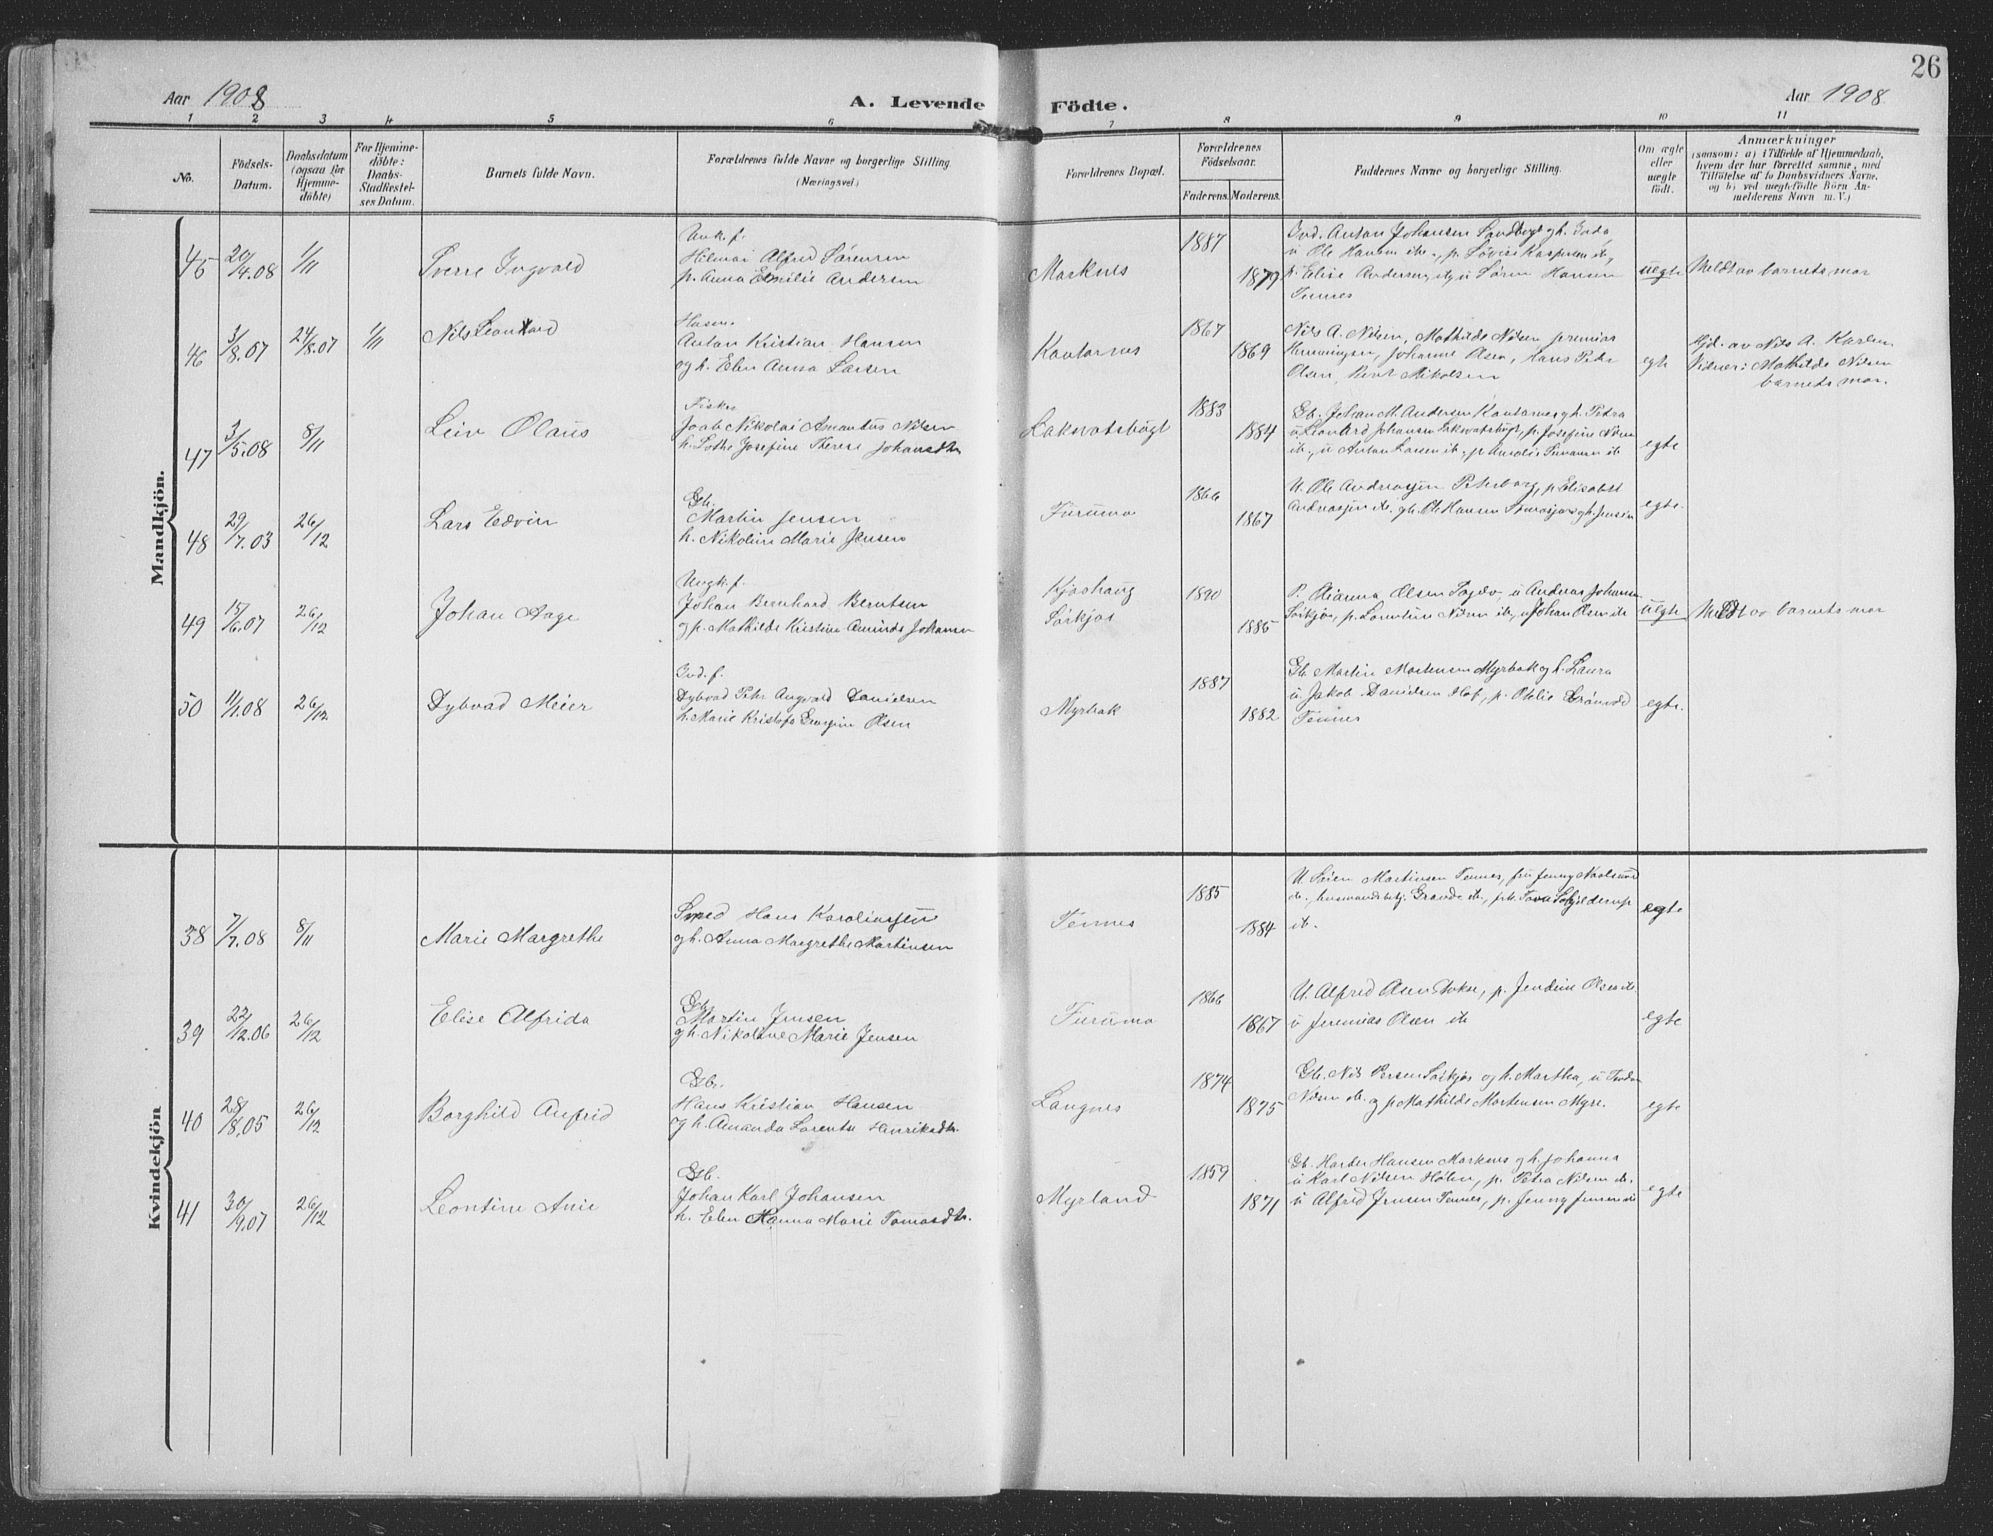 26
Aar 1908
A. Levende Födte.
Aar 1908
1 2 3 4 5 6 7 8 9 10 11
No.
Födsels-Datum.
Daabsdatum (ogsaa for Hjemmedöbte)
For Hjemmedöbte: Daabs-Stadfæstelses Datum.
Barnets fulde Navn.
Forældrenes fulde Navne og borgerlige Stilling (Næringsvei.)
Forældrenes Bopæl.
Forældrenes Födselsaar.
Faderens. Moderens.
Faddernes Navne og borgerlige Stilling.
Om ægte eller uægte födt.
Anmærkninger
(saasom: a) i Tilfælde af Hjemmedaab,
hvem der har forrettet samme, med
Tilföielse af to Daabsvidners Navne,
og b) ved uægtefödte Börn An-
melderens Navn m. V.)
Mandkjön.
45 20/4.08 1/11 Sverre Ingvald
Ungk. f.
Hilmar Alfred Sörensen
p. Anna Emilie Andersen
Marknes 1887 1879
Ole Hansen
p. Elise Andersen, Sören Hansen
Tennes
uegte Meldt av barnets mor
46 3/8.07 24/8.07 1/11 Nils Leonhard
Anton Kristian Hansen
og h. Elen Anna Larsen
Kantornes 1867 1869
Nils A. Nilsen, Mathilde Nilsen, Jeremias
Henningsen, Johanne Olsen, Hans Petr
Olsen, Bernt Mikalsen
egte
Hjd. av Nils A. Karlsen
Vidner: Mathilde Nilsen
barnets mor.
47 3/5.08 8/11 Leiv Olaus
Fisker
Joab Nikolai Amandus Nilsen
h. Josefine Therese Johansdtr
Lakvatsbögt 1883 1884
Gb. Johan M. Andersen Kantornes og h. Petra
u. Leonard Johansen Lakvatsbögt, p. Josefine Nilsen
ib., u. Anton Larsen ib., p. Amalie ib
egte
48 29/7.03 26/12 Lars Edvin
Gb.
Martin Jensen
h. Nikoline Marie Jensen
Furumo 1866 1867
U. Ole Andreassen Peterborg, p. Elisabet
Andreassen ib., gb. Ole Hansen
egte.
49 15/6.07 26/12 Johan Aage
Ungk. f.
Johan Bernhard Berntsen
og p. Mathilde Kristine Johansen
Kjoshaug
Sörkjos 1890 1885
P. Olianna Olsen, u. Andreas Johansen
Sörkjos, p. Lorentine Nilsen ib., u. Johan Olsen ib
uegte Meldt av barnets mor
50 11/1.08 26/12 Dybvad Meier
Ind. f.
Dybvad Petr Angvald Danielsen
h. Marie Kristofa Georgine Olsen
Myrbak 1887 1882
Gb. Martin Mortensen Myrbak og h. Laura
u. Jakob Danielsen Hof, p. Othilie Grönvold
Tennes
egte.
Kvindekjön
38 7/7.08 8/11 Marie Margrethe
Smed Hans Karoliussen
og h. Anna Margrethe Martinsen
Tennes 1885 1884
U. Sören Martinsen Tennes, fru Jenny
ib.
egte
39 22/12.06 26/12 Elise Alfrida
Gb.
Martin Jensen
og h. Nikoline Marie Jensen
Furumo 1866 1867
U. Alfred Olsen, p. Jendine Olsen ib.
u. Jeremias Olsen ib
egte
40 28/8.05 26/12 Borghild Anfrid
Gb.
Hans Kristian Hansen
og h. Amanda Lorentse Henriksdtr.
Langnes 1874 1875
Gb. Nils Persen Sörkjos og h. Martha, u.
Nilsen ib. og p. Mathilde Mortensen Myre.
egte
41 30/9.07 26/12 Leontine Anie
Gb.
Johan Karl Johansen
h. Elen Hanna Marie Tomasdtr.
Myrland 1859 1871
Gb. Harder Hansen Markenes og h. Johanna
u. Karl Nilsen Holm, p. Petra Nilsen ib.
u. Alfred Jensen Tennes, p. Jenny Jensen ib
egte